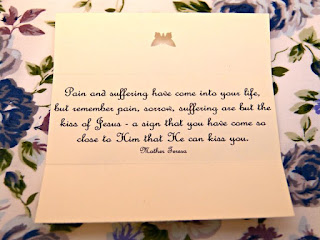 Pain and suffering have come into your life,
but remember pain, sorrow, suffering are but the
kiss of Jesus - a sign that you have come so
close to Him that He can kiss you.
Mother Teresa